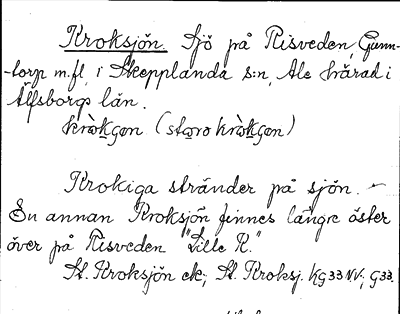 Kroksjön. Sjö på Risveden, Gunn-
-torp m.fl. i Skepplanda s:n, Ale härad i
Älfsborgs län.
kròkgən (stɷro kròkgən)
Krokiga stränder på sjön. –
En annan Kroksjön finnes längre öster
över på Risveden "Lille K."
St. Kroksjön ek; St. Kroksj. KG33 NV; G33.